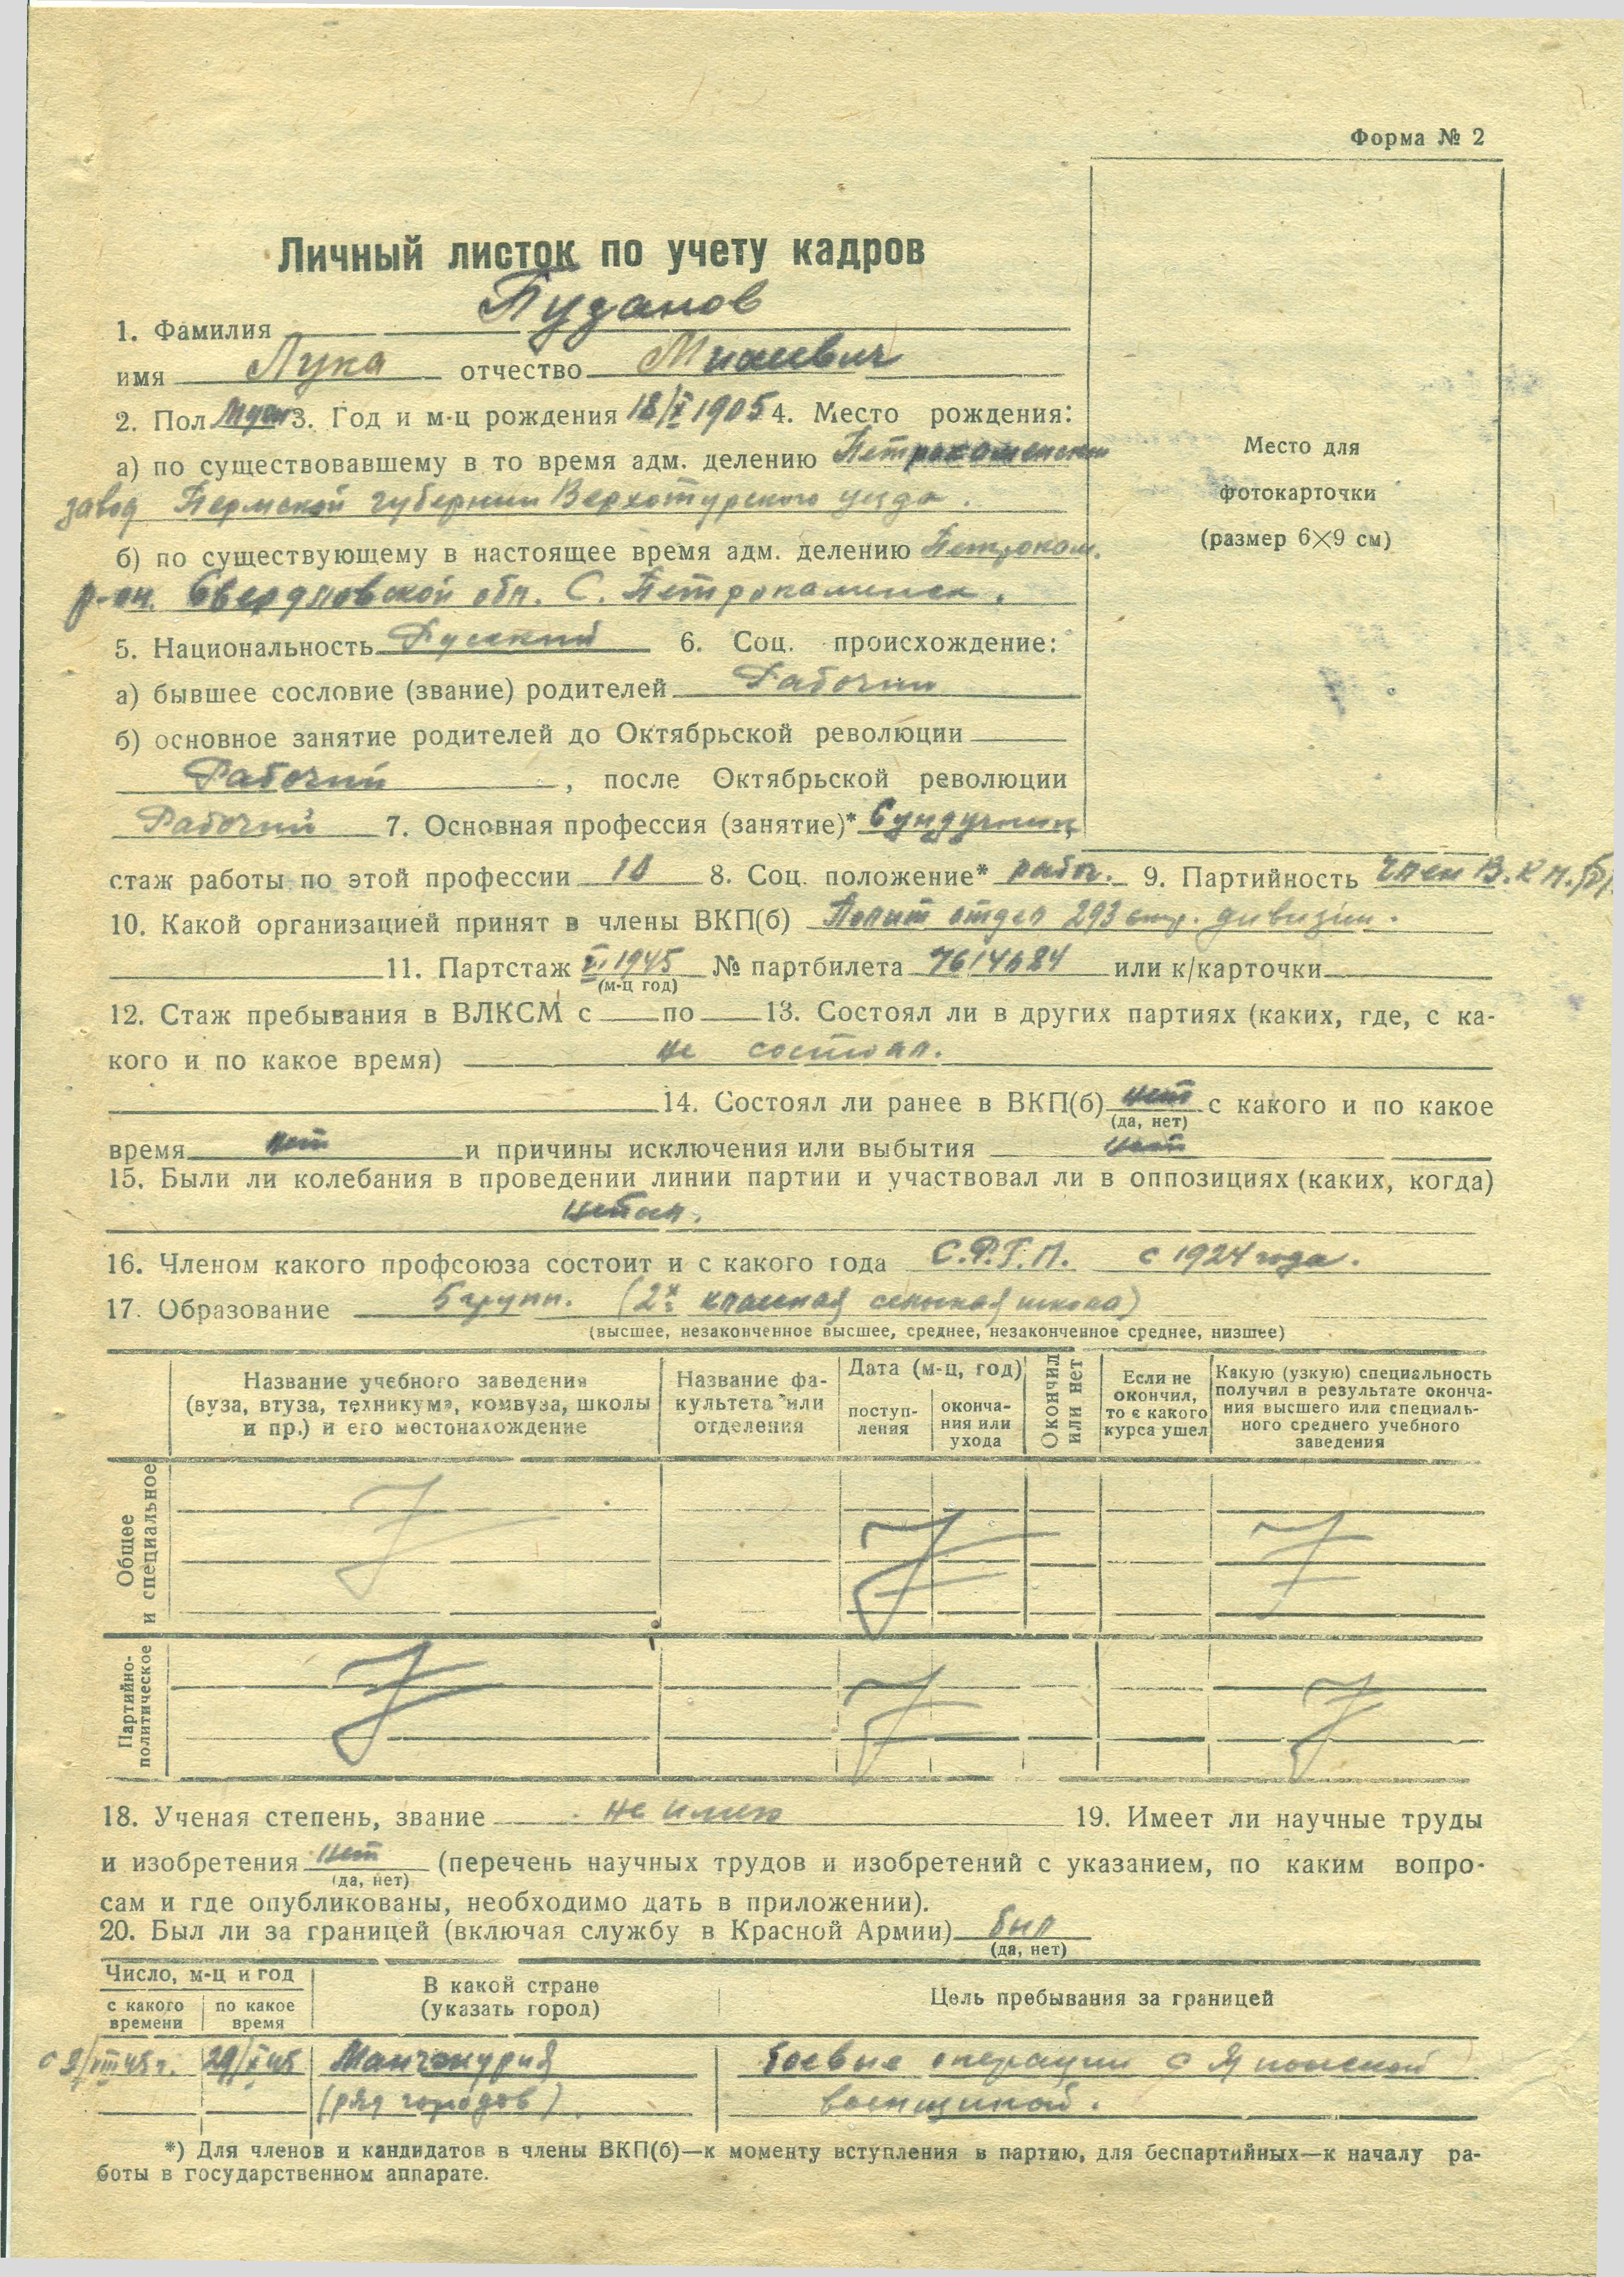 Форма № 2
Личный листок по учету кадров
1. Фамилия Пузанов
имя Лука отчество Михеевич
2. Пол Муж 3. Год и м-ц рождения 18/X 1905 4. Место рождения:
а) по существовавшему в то время адм. делению Петрокаменский
завод Пермской губернии Верхотурского уезда.
б) по существующему в настоящее время адм. делению Петрокам.
р-он. Свердловской обл. С. Петрокаменск.
5. Национальность Русский 6. Соц. происхождение:
а) бывшее сословие (звание) родителей Рабочий
б) основное занятие родителей до Октябрьской революции
Рабочий, после Октябрьской революции
Рабочий 7. Основная профессия (занятие)* Сундучник
Место для
фотокарточки
(размер 6×9 см)
стаж работы по этой профессии 10 8. Соц. положение* рабоч. 9. Партийность Член В.К.П.(б).
10. Какой организацией принят в члены ВКП(б) Полит отдел 293 стр. дивизии.
11. Партстаж VI 1945 № партбилета 7614684 или к/карточки
(м-ц год)
12. Стаж пребывания в ВЛКСМ с по 13. Состоял ли в других партиях (каких, где, с ка-
кого и по какое время) не состоял.
14. Состоял ли ранее в ВКП(б) нет с какого и по какое
(да, нет)
время нет и причины исключения или выбытия нет
15. Были ли колебания в проведении линии партии и участвовал ли в оппозициях (каких, когда)
16. Членом какого профсоюза состоит и с какого года С.Р.Г.П. с 1924 года.
17. Образование 5 групп. (2х классная сельская школа)
(высшее, незаконченное высшее, среднее, незаконченное среднее, низшее)
Название учебного заведения
(вуза, втуза, техникума, комвуза, школы
и пр.) и его местонахождение
Название фа-
культета или
отделения
Дата (м-ц, год)
поступ-
ления
оконча-
ния или
ухода
Окончил
или нет
Если не
окончил,
то с какого
курса ушел
Какую (узкую) специальность
получил в результате оконча-
ния высшего или специаль-
ного среднего учебного
заведения
Общее
и специальное
Партийно-
политическое
18. Ученая степень, звание не имею 19. Имеет ли научные труды
и изобретения нет (перечень научных трудов и изобретений с указанием, по каким вопро-
(да, нет)
сам и где опубликованы, необходимо дать в приложении).
20. Был ли за границей (включая службу в Красной Армии) был
(да, нет)
Число, м-ц и год
с какого
времени
по какое
время
В какой стране
(указать город)
Цель пребывания за границей
с 9/VIII 45 г. 29/X 45 Манчжурия боевые операции с Японской
(ряд городов) военщиной.
*) Для членов и кандидатов в члены ВКП(б)—к моменту вступления в партию, для беспартийных—к началу ра-
боты в государственном аппарате.